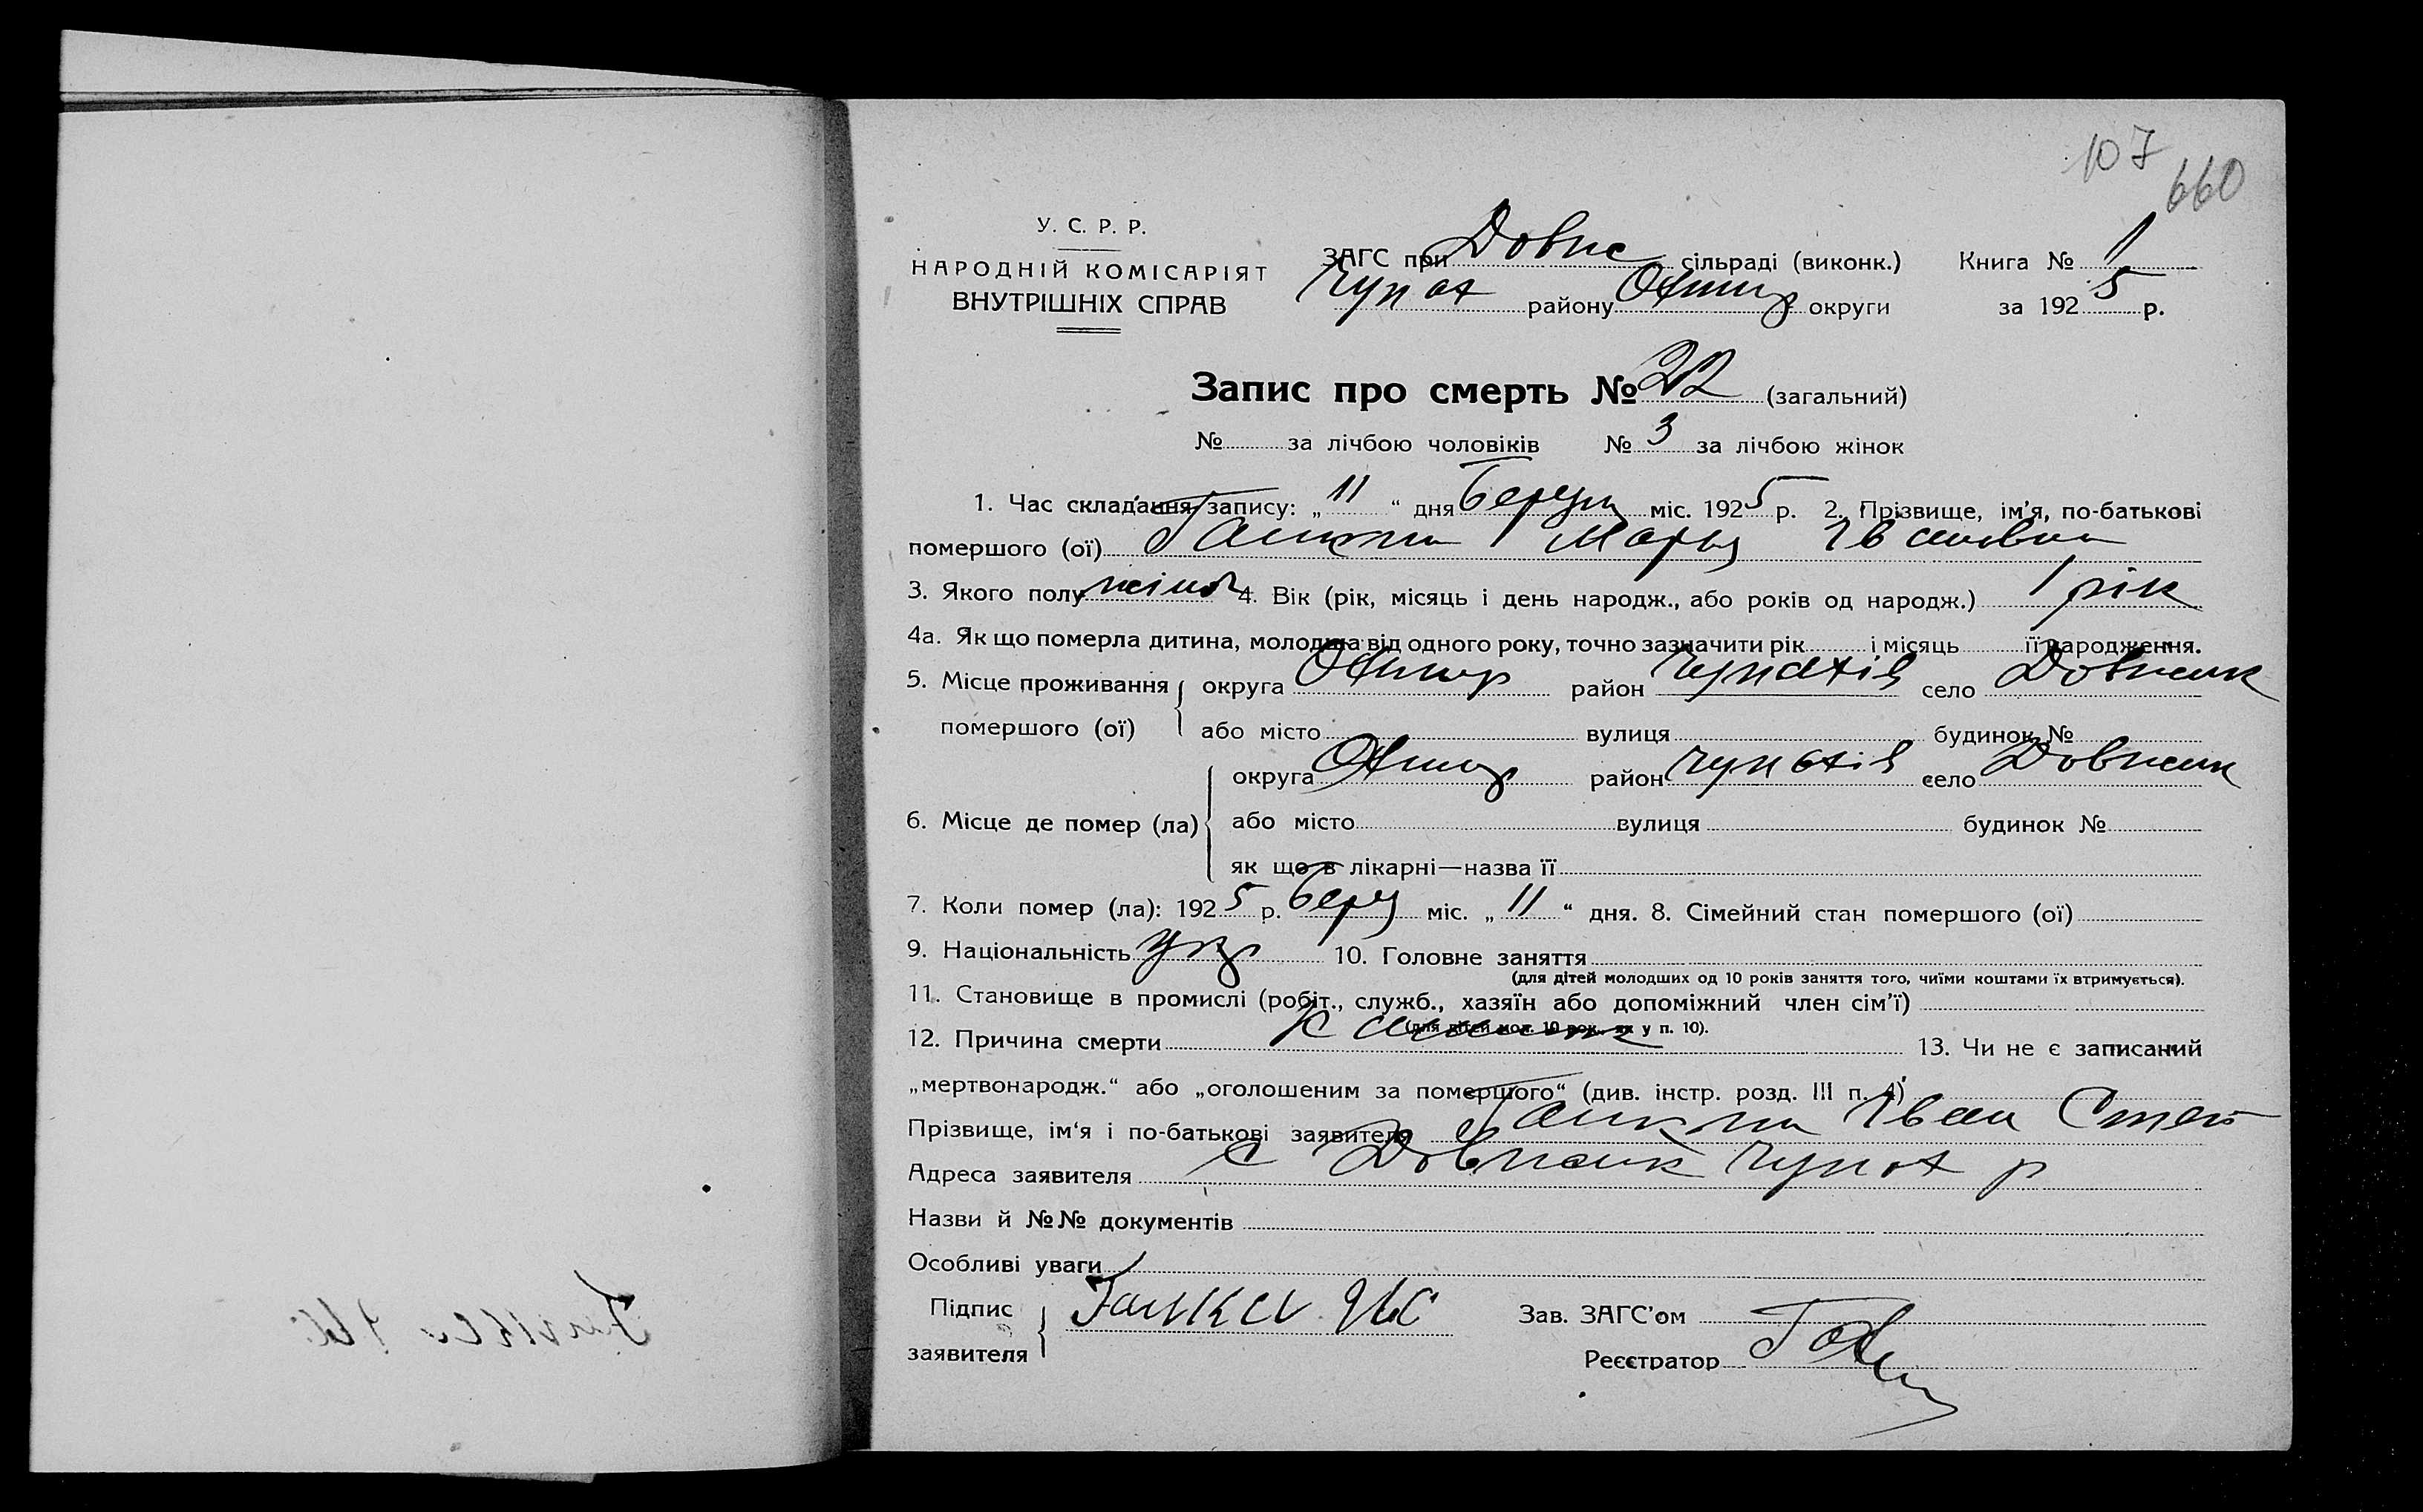 107
660
У. С. Р. Р.
НАРОДНІЙ КОМІСАРІЯТ
ВНУТРІШНІХ СПРАВ
ЗАГС при Довже сільраді (виконк.) Книга № 1
Чупах району Охтир округи за 1925 р.
Запис про смерть № 22 (загальний)
№ за лічбою чоловіків № 3 за лічбою жінок
1. Час складання запису: „11“ дня Березня міс. 1925 р. 2. Прізвище, ім’я, по-батькові
помершого (ої) Ганжа Марія Івановна
3. Якого полу жіноч 4. Вік (рік, місяць і день народж., або років од народж.) 1 рік
4а. Як що померла дитина, молодша від одного року, точно зазначити рік і місяць її народження.
5. Місце проживання округа Охтир район Чупахів село Довжик
помершого (ої) або місто вулиця будинок №
округа Охтир район Чупахів село Довжик
6. Місце де помер (ла) або місто вулиця будинок №
як що в лікарні—назва її
7. Коли помер (ла): 1925 р. Бер міс. „11“ дня. 8. Сімейний стан помершого (ої)
9. Національність укр 10. Головне заняття
(для дітей молодших од 10 років заняття того, чиїми коштами їх втримується).
11. Становище в промислі (робіт., служб., хазяїн або допоміжний член сім’ї)
(для дітей мол. 10 рок., як у п. 10).
12. Причина смерти 13. Чи не є записаний
„мертвонародж.“ або „оголошеним за помершого“ (див. інстр. розд. III п. 4)
Прізвище, ім‘я і по-батькові заявителя Ганжа Іван Степ
Адреса заявителя с Довжик Чупах р
Назви й №№ документів
Особливі уваги
Підпис Зав. ЗАГС’ом
заявителя Реєстратор